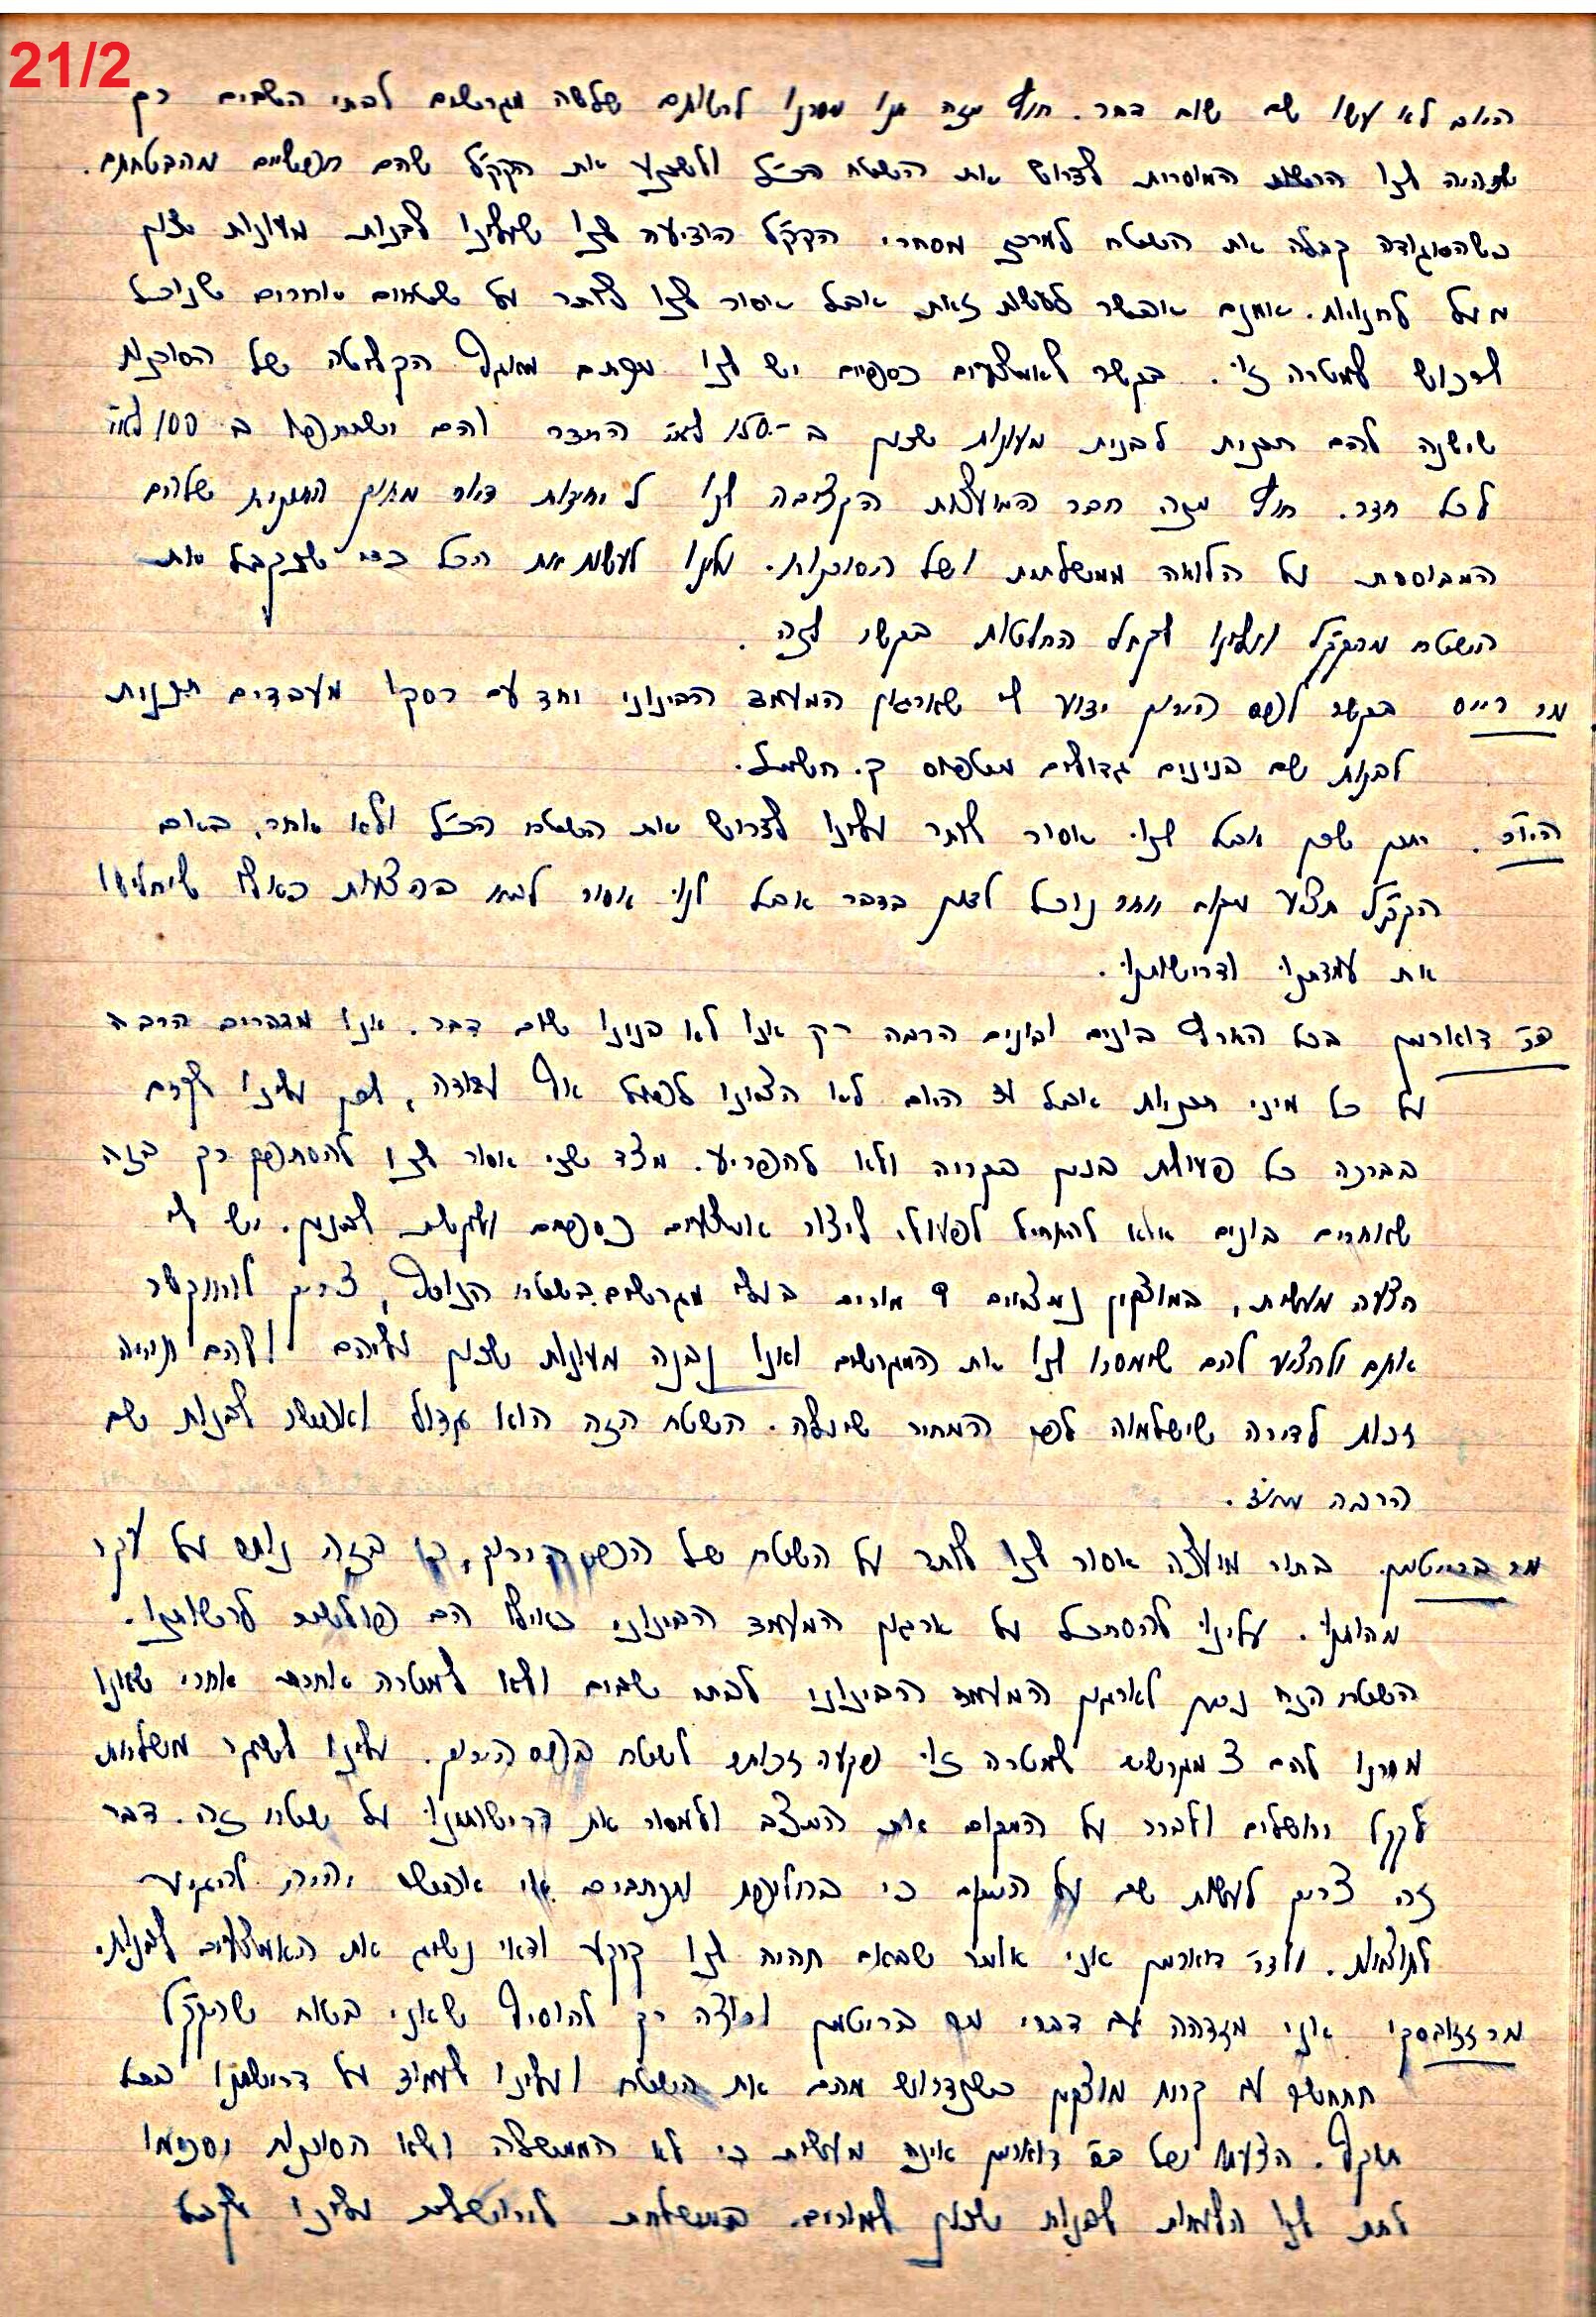 21/2
היום לא עשו שם שום דבר. חוץ מזה אנו מסרנו לרשותם שלשה מגרשים לבתי השבים רק
שתהיה לנו הרשות המוסרית לדרוש את השטח הנ"ל ולשכנע את הקק"ל שהם חפשיים מהבטחתם.
כשהסוגודה קבלה את השטח למרכז מסחרי הקק"ל הודיעה לנו שעלינו לבנות מעונות שכון
מעל לחנויות. אמנם אפשר לעשות זאת אבל אסור לנו לותר על שטחים אחרים שנוכל
לרכוש למטרה זו. בקשר לאמצעים כספיים יש לנו מכתב מאגף הקליטה של הסוכנות
שישנה להם תכנית לבנית מעונות שכון ב -.150 לא"י החדר והם ישתתפו ב 100 לא"י
לכל חדר. חוץ מזה חבר המועצות הקציבה לנו ל יחידות דיור מתוך התקנית שלהם
המבוססת על הלואה ממשלתית ושל הסוכנות. עלינו לעשות את הכל כדי שנקבל את
השטח מהקק"ל ועלינו לקבל החלטות בקשר לזה.
מר רייס בקשר לפס הירוק ידוע לי שארגון המעמד הבינוני יחד עם רסקו מעבדים תכניות
לבנות שם בנינים גדולים מטפוס ק. חשמל.
היו"ר. יתכן שכן אבל לנו אסור לותר עלינו לדרוש את השטח הנ"ל ולא אחר, באם
הקק"ל תציע מקום אחר נוכל לדון בדבר אבל לנו אסור לבא בהצעות כאלו שיחלישו
את עמדתנו ודרישותנו.
גב' דוארמן בכל הארץ בונים ובונים הרבה רק אנו לא בנינו שום דבר. אנו מדברים הרבה
על כל מיני תכניות אבל עד היום לא הצענו לפועל אף עבודה, לכן עלינו לקדם
בברכה כל פעולת בנין בקריה ולא להפריע. מצד שני אסור לנו להסתפק רק בזה
שאחרים בונים אלא להתחיל לפעול, ליצור אמצעים כספיים וקרקעות לבנין. יש לי
הצעה מעשית, במוצקין נמצאים 9 מורים בעלי מגרשים בשטח הנוסף, צריך להתקשר
אתם ולהציע להם שימסרו לנו את המגרשים ואנו נבנה מעונות שכון עליהם ולהם תהיה
זכות לדירה שישלמוה לפי המחיר שיעלה. השטח הזה הוא גדול ואפשר לבנות שם
הרבה מאוד.
מר ברייטמן. בתור מועצה אסור לנו לותר על השטח של הפס הירוק, כי בזה נותר על עקר
מהותנו. עלינו להסתכל על ארגון המעמד הבינוני כאילו הם פולשים לרשותנו.
השטח הזה ניתן לארגון המעמד הבינוני לבתי שבים ולא למטרה אחרת אחרי שאנו
מסרנו להם 3 מגרשים למטרה זו פקעה זכותם לשטח בפס הירוק. עלינו לשגר משלחת
לקק"ל ירושלים ולברר על המקום את המצב ולמסור את דרישותנו על שטח זה. דבר
זה צריך לעשות שם על המקום כי בחליפת מכתבים אי אפשר יהיה להגיע
לתוצאות. ולגב' דוארמן אני אומר שבאם תהיה לנו קרקע ודאי נשיג את האמצעים לבנית.
מר זזובסקי אני מזדהה עם דברי מר ברייטמן ורוצה רק להוסיף שאני בטוח שהקק"ל
תתחשב עם קרית מוצקין כשנדרוש מהם את השטח ועלינו לעמוד על דרישתנו בכל
תוקף. הצעתה של גב' דוארמן אינה מעשית כי לא הממשלה ולא הסוכנות יסכימו
לתת לנו הלואות לבנית שכון למורים. המשלחת לירושלים עלינו לקבל